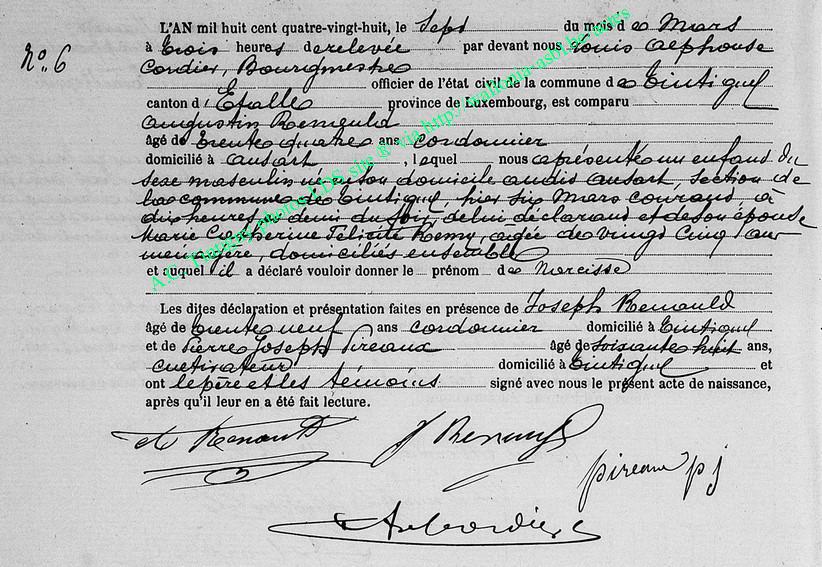 L'AN mil huit cent quatre-vingt-huit, le Sept du mois de Mars
No. 6
à trois heures de relevée par devant nous Louis Alphonse
Cordier, Bourgmestre
officier de l'état civil de la commune de Tintigny
canton d'Etalle province de Luxembourg, est comparu
Augustin Renauld
âgé de trente quatre ans cordonnier
domicilié à Ansart, lequel nous a présenté un enfant du
sexe masculin né en son domicile audit Ansart, section de
la commune de Tintigny, hier six Mars courant, à
dix heures et demi du soir, de lui déclarant et de son épouse
Marie Catherine Félicité Remy, âgée de vingt cinq ans
menagère, domiciliés ensemble
et auquel il a déclaré vouloir donner le prénom de Narcisse
Les dites déclaration et présentation faites en présence de Joseph Renauld
âgé de trente neuf ans cordonnier domicilié à Tintigny
et de Pierre Joseph Pireaux âgé de soixante huit ans,
cultivateur domicilié à Tintigny et
ont le père et les témoins signé avec nous le présent acte de naissance,
après qu'il leur en a été fait lecture.
J Renauld
pireaux pj